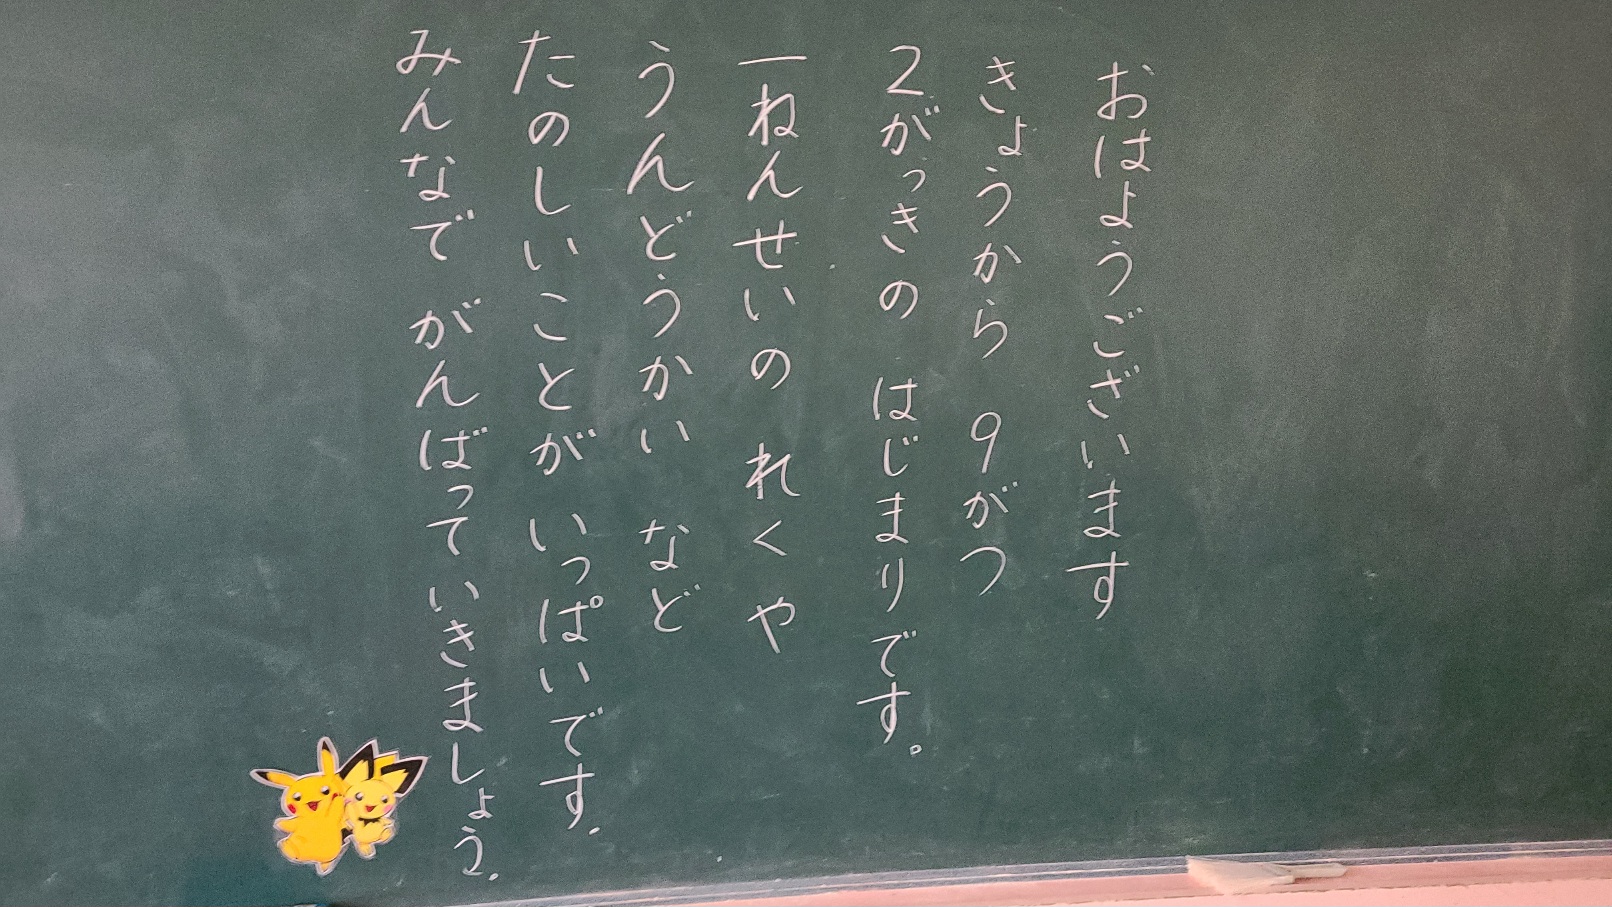 おはようございます
きょうから 9がつ
2がっきの はじまりです。
一ねんせいの れくや
うんどうかい など
たのしいことが いっぱいです.
みんなで がんばっていきましょう.